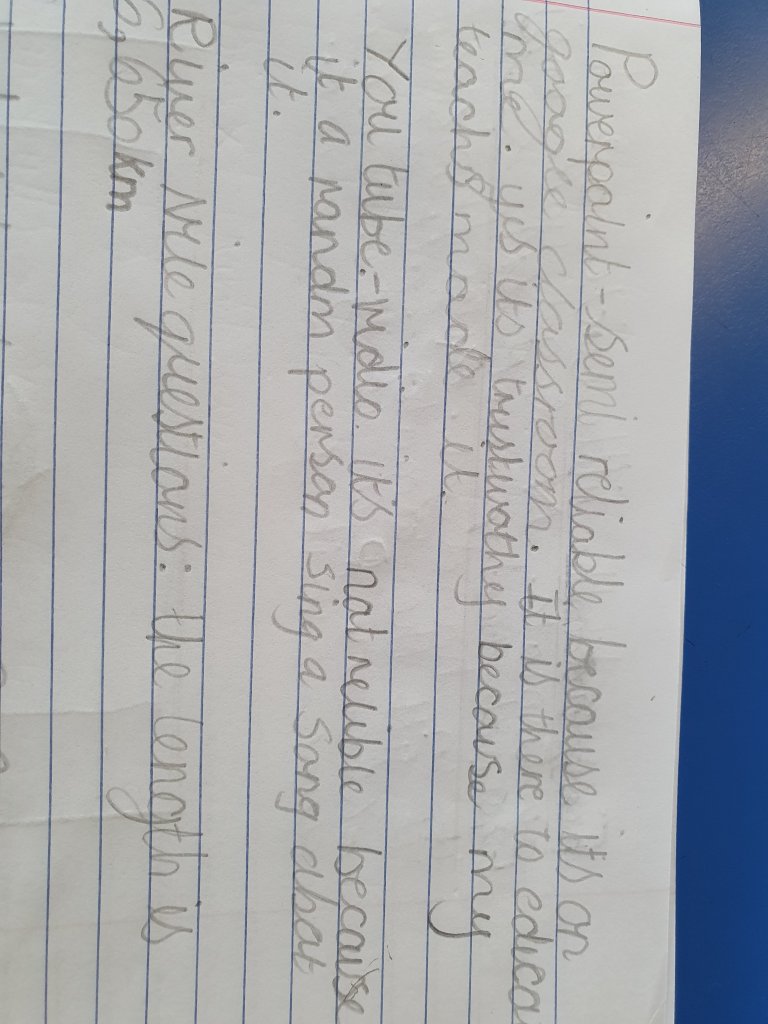 Powerpoint - semi reliable because it's on
google classroom. It is there to educa
me. yes its trustwothy because my
teachs made it.
You tube - vidio. it's not reluble because
it a randm person sing a song abhat
it.
River Nile questions: the length is
6,650km